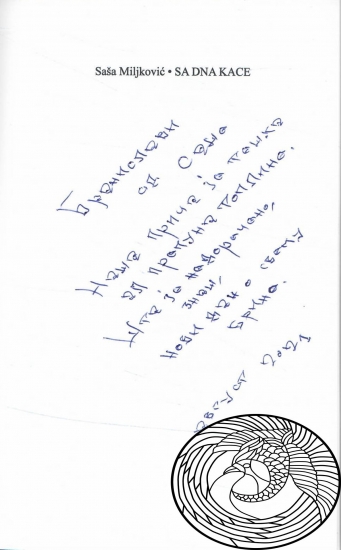 Saša Miljković • SA DNA KACE
Бранислави
од Саше
Наша прича је тешка
ал препуна топлине.
Шта је недоречено,
знаш,
нови дан о свему
брине.
август 2021